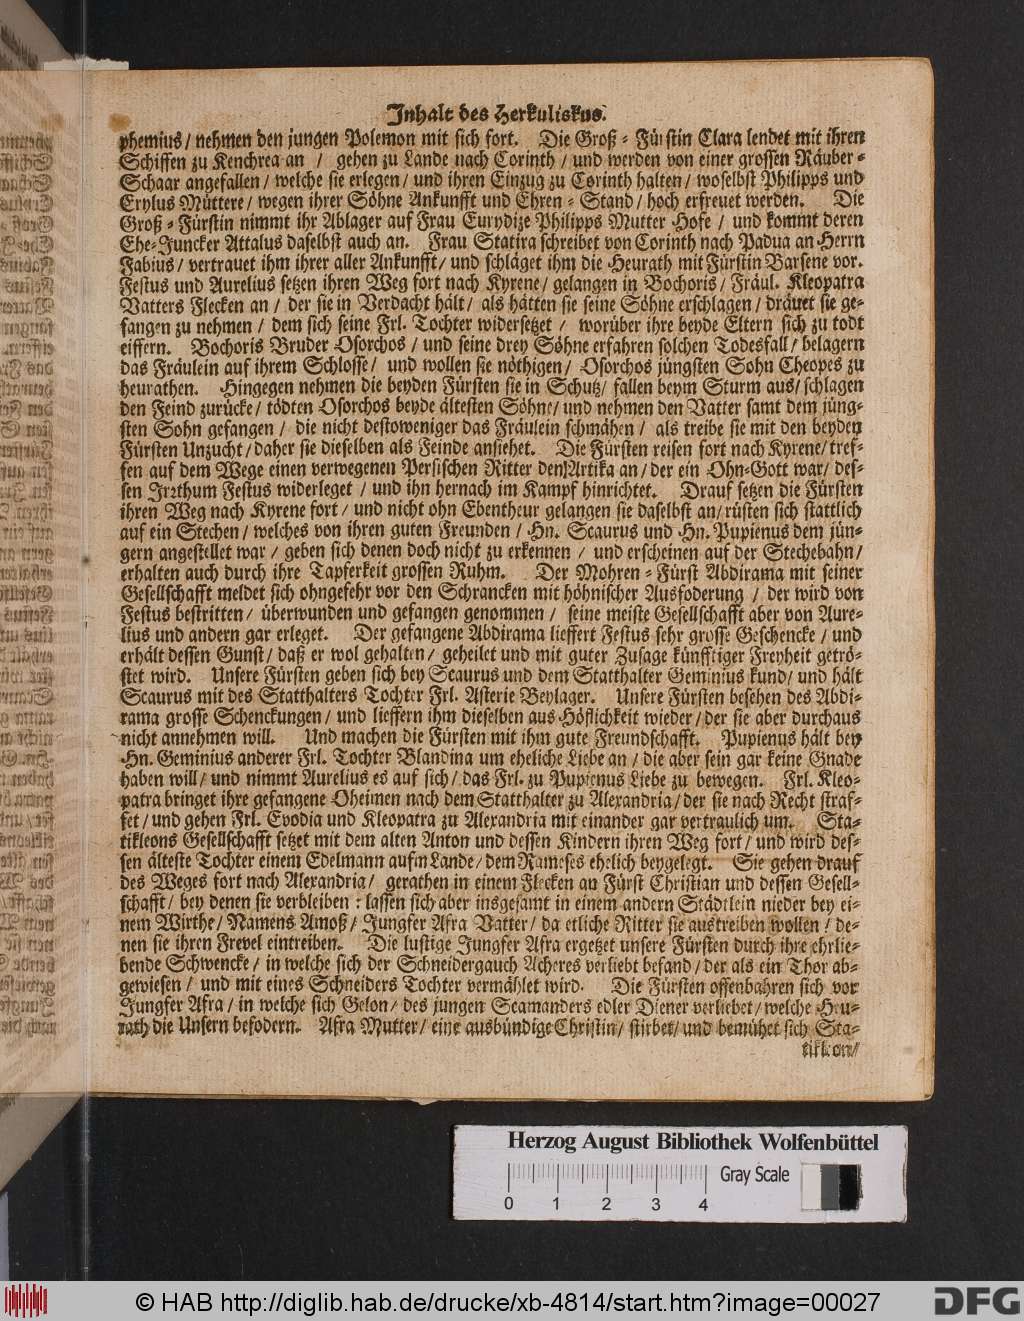 Inhalt des Herkuliskus.
phemius/ nehmen den jungen Polemon mit sich fort. Die Groß-Fürstin Clara lendet mit ihren
Schiffen zu Kenchrea an / gehen zu Lande nach Corinth / und werden von einer grossen Räuber-
Schaar angefallen/ welche sie erlegen/ und ihren Einzug zu Corinth halten/ woselbst Philipps und
Erylus Müttere/ wegen ihrer Söhne Ankunfft und Ehren-Stand/ hoch erfreuet werden. Die
Groß-Fürstin nimmt ihr Ablager auf Frau Eurydize Philipps Mutter Hofe / und kommt deren
Ehe-Juncker Attalus daselbst auch an. Frau Statira schreibet von Corinth nach Padua an Herrn
Fabius/ vertrauet ihm ihrer aller Ankunfft/ und schläget ihm die Heurath mit Fürstin Barsene vor.
Festus und Aurelius setzen ihren Weg fort nach Kyrene/ gelangen in Bochoris/ Fräul. Kleopatra
Vatters Flecken an / der sie in Verdacht hält/ als hätten sie seine Söhne erschlagen/ dräuet sie ge-
fangen zu nehmen / dem sich seine Frl. Tochter widersetzet / worüber ihre beyde Eltern sich zu todt
eiffern. Bochoris Bruder Osorchos / und seine drey Söhne erfahren solchen Todesfall/ belagern
das Fräulein auf ihrem Schlosse/ und wollen sie nöthigen/ Osorchos jüngsten Sohn Cheopes zu
heurathen. Hingegen nehmen die beyden Fürsten sie in Schutz/ fallen beym Sturm aus/ schlagen
den Feind zurücke/ tödten Osorchos beyde ältesten Söhne/ und nehmen den Vatter samt dem jüng-
sten Sohn gefangen / die nicht destoweniger das Fräulein schmähen / als treibe sie mit den beyden
Fürsten Unzucht/ daher sie dieselben als Feinde ansiehet. Die Fürsten reisen fort nach Kyrene/ tref-
fen auf dem Wege einen verwegenen Persischen Ritter den Artika an/ der ein Ohn-Gott war/ des-
sen Irrthum Festus widerleget / und ihn hernach im Kampf hinrichtet. Drauf setzen die Fürsten
ihren Weg nach Kyrene fort/ und nicht ohn Ebentheur gelangen sie daselbst an/ rüsten sich stattlich
auf ein Stechen/ welches von ihren guten Freunden / Hn. Scaurus und Hn. Pupienus dem jün-
gern angestellet war / geben sich denen doch nicht zu erkennen / und erscheinen auf der Stechebahn/
erhalten auch durch ihre Tapferkeit grossen Ruhm. Der Mohren-Fürst Abdirama mit seiner
Gesellschafft meldet sich ohngefehr vor den Schrancken mit höhnischer Ausfoderung / der wird von
Festus bestritten/ überwunden und gefangen genommen / seine meiste Gesellschafft aber von Aure-
lius und andern gar erleget. Der gefangene Abdirama lieffert Festus sehr grosse Geschencke / und
erhält dessen Gunst/ daß er wol gehalten/ geheilet und mit guter Zusage künfftiger Freyheit getrö-
stet wird. Unsere Fürsten geben sich bey Scaurus und dem Statthalter Geminius kund/ und hält
Scaurus mit des Statthalters Tochter Frl. Asterie Beylager. Unsere Fürsten besehen des Abdi-
rama grosse Schenckungen/ und lieffern ihm dieselben aus Höflichkeit wieder/ der sie aber durchaus
nicht annehmen will. Und machen die Fürsten mit ihm gute Freundschafft. Pupienus hält bey
Hn. Geminius anderer Frl. Tochter Blandina um eheliche Liebe an/ die aber sein gar keine Gnade
haben will/ und nimmt Aurelius es auf sich/ das Frl. zu Pupienus Liebe zu bewegen. Frl. Kleo-
patra bringet ihre gefangene Oheimen nach dem Statthalter zu Alexandria/ der sie nach Recht straf-
fet/ und gehen Frl. Evodia und Kleopatra zu Alexandria mit einander gar vertraulich um. Sta-
tikleons Gesellschafft setzet mit dem alten Anton und dessen Kindern ihren Weg fort/ und wird des-
sen älteste Tochter einem Edelmann aufm Lande/ dem Rameses ehelich beygelegt. Sie gehen drauf
des Weges fort nach Alexandria/ gerathen in einem Flecken an Fürst Christian und dessen Gesell-
schafft/ bey denen sie verbleiben: lassen sich aber insgesamt in einem andern Städtlein nieder bey ei-
nem Wirthe/ Namens Amoß/ Jungfer Afra Vatter/ da etliche Ritter sie austreiben wollen/ de-
nen sie ihren Frevel eintreiben. Die lustige Jungfer Afra ergetzet unsere Fürsten durch ihre ehrlie-
bende Schwencke/ in welche sich der Schneidergauch Acheres verliebt befand/ der als ein Thor ab-
gewiesen/ und mit eines Schneiders Tochter vermählet wird. Die Fürsten offenbahren sich vor
Jungfer Afra/ in welche sich Gelon/ des jungen Scamanders edler Diener verliebet/ welche Heu-
rath die Unsern befodern. Afra Mutter/ eine ausbündige Christin/ stirbet/ und bemühet sich Sta-
tikleon/
Herzog August Bibliothek Wolfenbüttel
Gray Scale
0 1 2 3 4
© HAB http://diglib.hab.de/drucke/xb-4814/start.htm?image=00027
DFG